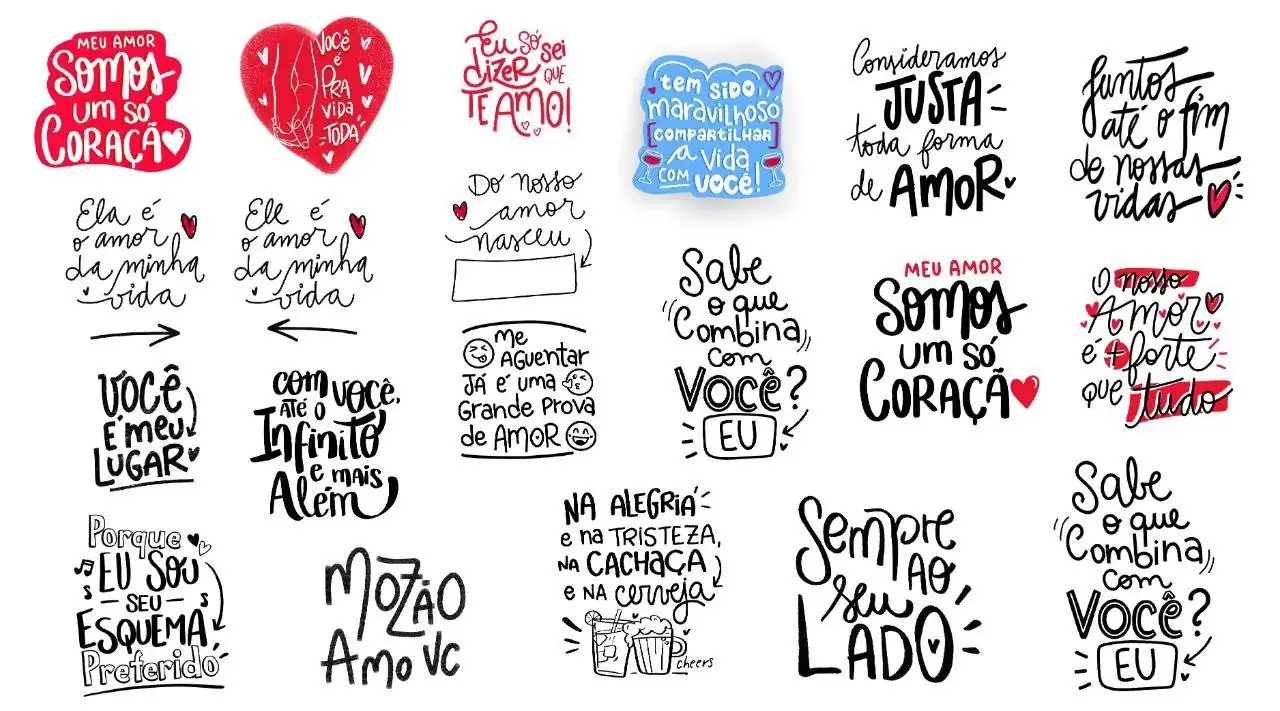 MEU AMOR
SOMOS
UM SÓ
CORAÇÃ
VOCÊ
É
PRA
VIDA
TODA
Eu SÓ sei
dizer QUE
TE AMO!
tem SIDO
maravilhoso
COMPARTILHAR
a Vida
COM VOCÊ!
Consideramos
JUSTA
toda forma
de AMOR
Juntos
até o fim
de nossas
vidas
Ela é
o amor
da minha
vida
Ele é
o amor
da minha
vida
Do nosso
amor
nasceu
Sabe
o que
Combina
com
VOCÊ?
EU
MEU AMOR
SOMOS
UM SÓ
CORAÇÃ
O nosso
Amor
é + forte
que tudo
VOCÊ
É MEU
LUGAR
COM VOCÊ,
ATÉ O
Infinito
e mais
Além
Me
AGUENTAR
JÁ É UMA
Grande Prova
de AMOR
Porque
EU SOU
SEU
ESQUEMA
Preferido
MOZÃO
AMO VC
NA ALEGRIA
e na TRISTEZA,
NA CACHAÇA
e NA cerveja
cheers
Sempre
AO
seu
LADO
Sabe
o que
Combina
com
VOCÊ?
EU